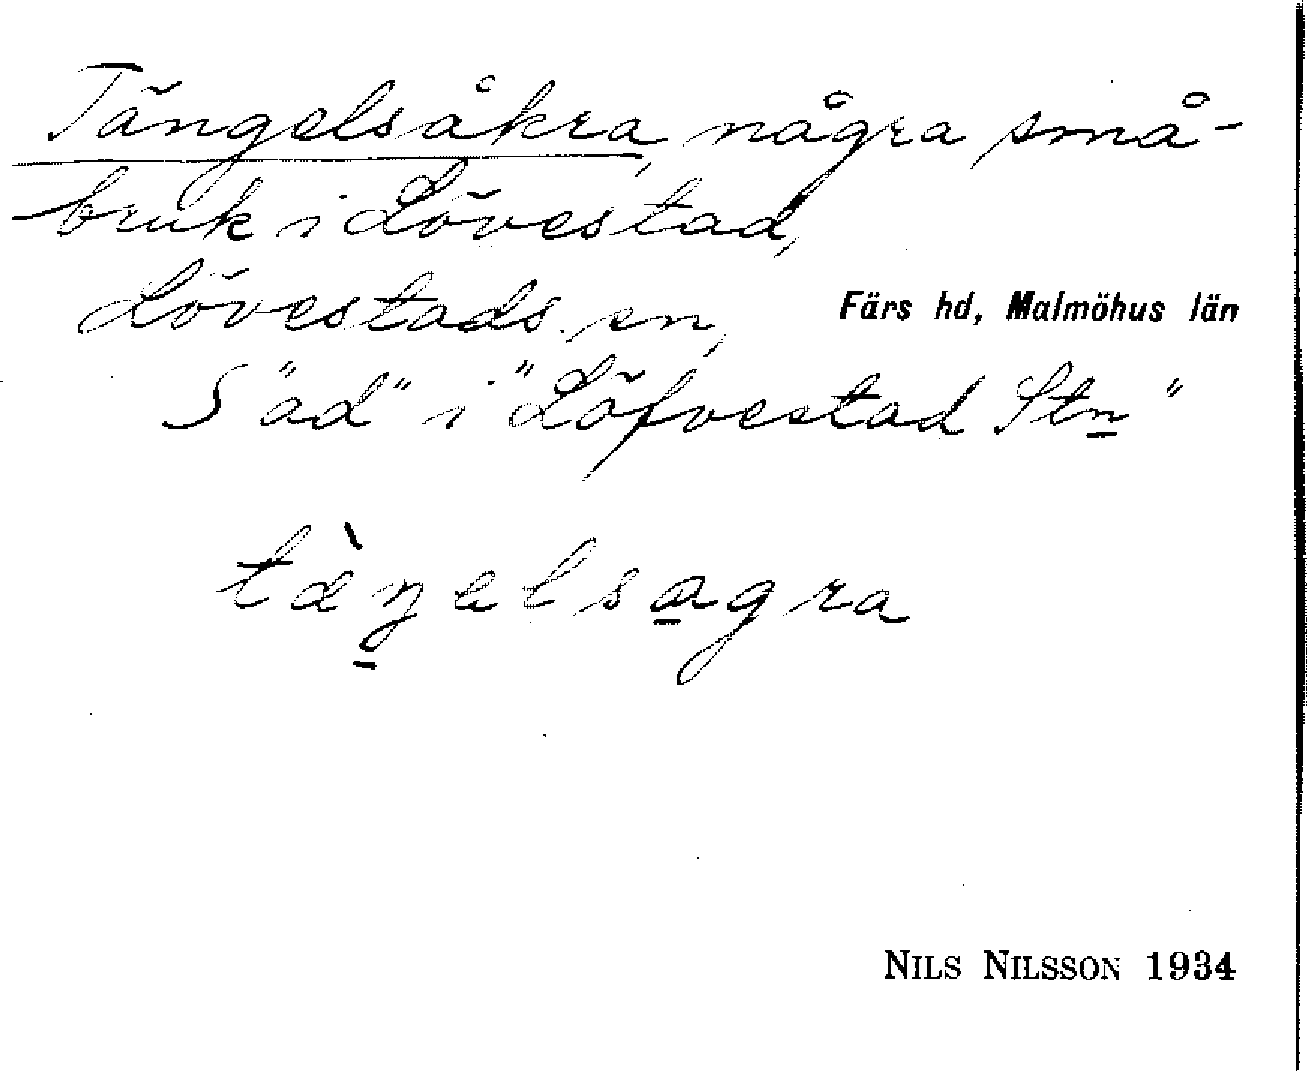 Tängelsåkra, några små-
bruk i Lövestad,
Lövestads sn, Färs hd, Malmöhus län
S "äd" i "Löfvestad Stn"
tæ̀ŋelsagra
NILS NILSSON 1934